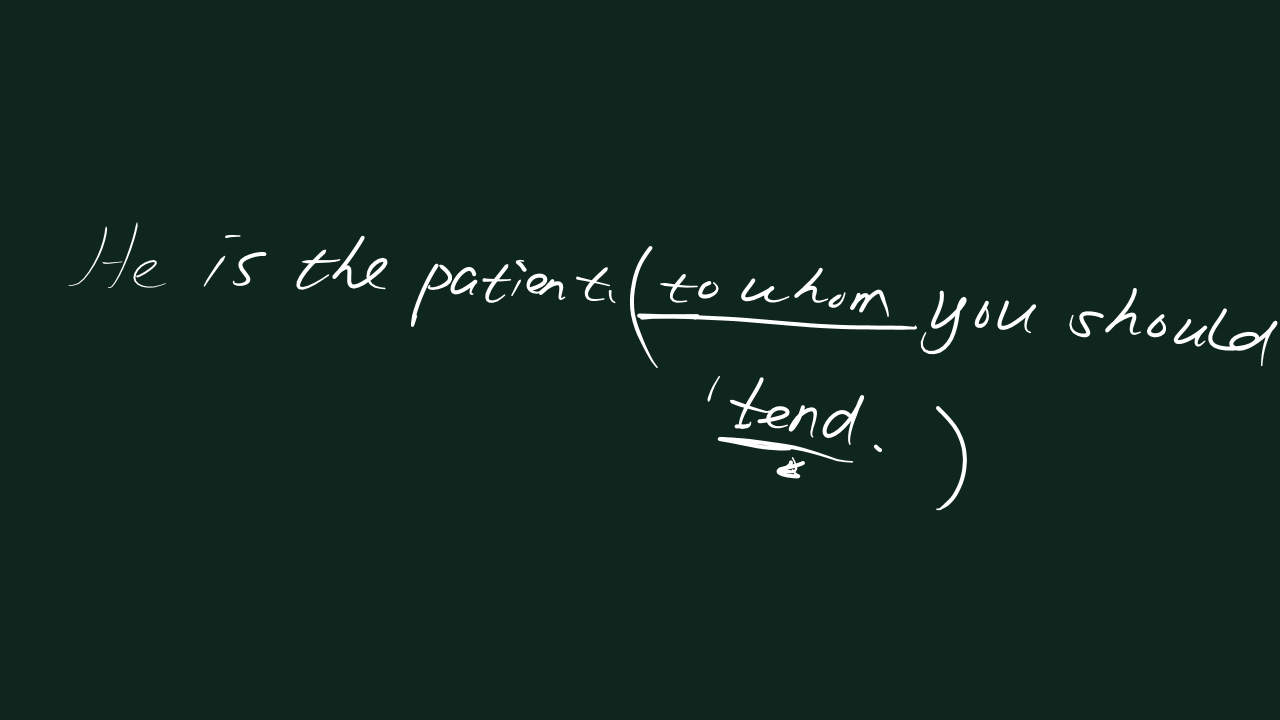 He is the patient (to whom you should
tend.)